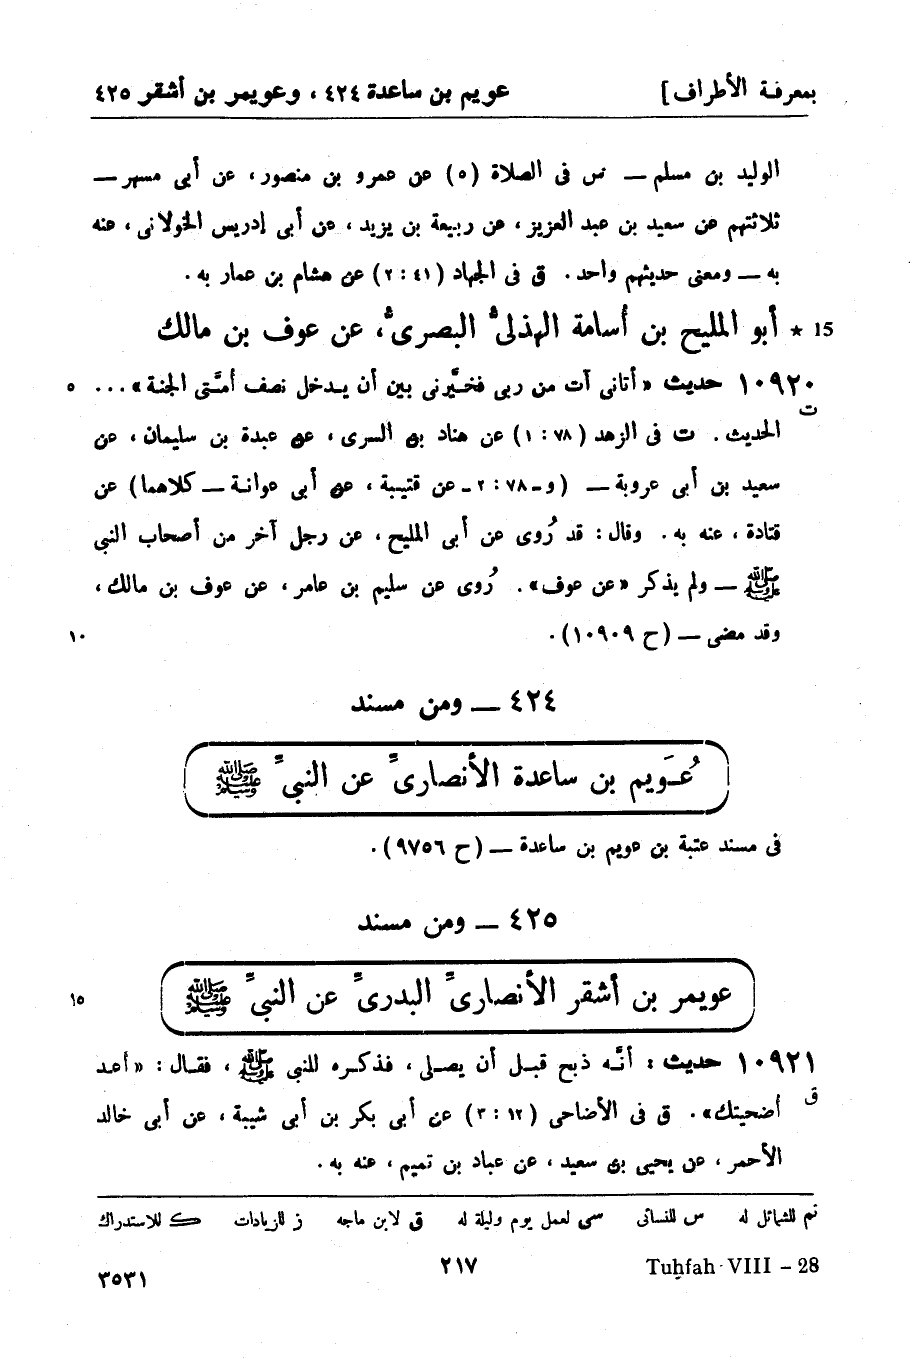 بمعرفة الأطراف] عويم بن ساعدة ٤٢٤ ، وعويمر بن أشقر ٤٢٥
الوليد بن مسلم — س فى الصلاة (٥) عن عمرو بن منصور، عن أبى مسهر —
ثلاثتهم عن سعيد بن عبد العزيز ، عن ربيعة بن يزيد ، عن أبى إدريس الخولانى ، عنه
به — ومعنى حديثهم واحد . ق فى الجهاد (٤١ : ٢) عن هشام بن عمار به .
15 * أبو المليح بن أسامة الهذلىُّ البصرىُّ، عن عوف بن مالك
١٠٩٢٠ حديث « أتانى آت من ربى فخيَّرنى بين أن يدخل نصف أمَّتى الجنة » ... ٥
ت
الحديث . ت فى الزهد (٧٨ : ١) عن هناد بن السرى ، عن عبدة بن سليمان ، عن
سعيد بن أبى عروبة — (و ـ ٧٨ : ٢ ـ عن قتيبة ، عن أبى عوانة — كلاهما) عن
قتادة ، عنه به . وقال : قد رُوى عن أبى المليح ، عن رجل آخر من أصحاب النبى
ﷺ — ولم يذكر « عن عوف » . رُوى عن سليم بن عامر ، عن عوف بن مالك ،
وقد مضى — (ح ١٠٩٠٩) . ١٠
٤٢٤ — ومن مسند
عُـوَيم بن ساعدة الأنصارىِّ عن النبىِّ ﷺ
فى مسند عتبة بن عويم بن ساعدة — (ح ٩٧٥٦) .
٤٢٥ — ومن مسند
عويمر بن أشقر الأنصارىِّ البدرىِّ عن النبىِّ ﷺ ١٥
١٠٩٢١ حديث : أنَّه ذبح قبل أن يصلى ، فذكره للنبى ﷺ ، فقال : « أعد
ق
أضحيتك » . ق فى الأضاحى (١٢ : ٣) عن أبى بكر بن أبى شيبة ، عن أبى خالد
الأحمر ، عن يحيى بن سعيد ، عن عباد بن تميم ، عنه به .
تم للشمائل له س للنسائى سى لعمل يوم وليلة له ق لابن ماجه ز للزيادات ك للاستدراك
Tuḥfah VIII – 28 ٢١٧ ٣٥٣١